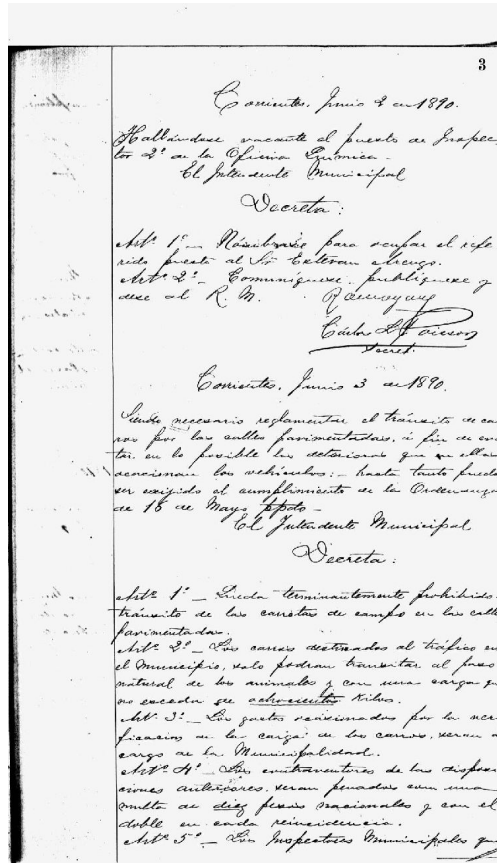 3
Corrientes, Junio 2 de 1890.
Hallándose vacante el puesto de Inspec
tor 2º de la Oficina Química.
El Intendente Municipal
Decreta:
Artº 1º _ Nómbrase para ocupar el refe
rido puesto al Sr Estevan
Artº 2º _ Comuníquese, publíquese y
dese al R. M.
Cárlos
Secret.
Corrientes, Junio 3 de 1890.
Siendo necesario reglamentar el tránsito de car
ros por las calles pavimentadas, á fin de evi
tar en lo posible los deterioros que en ellas
ocasionan los vehículos; _ hasta tanto pueda
ser exigido el cumplimiento de la Ordenanza
de 16 de Mayo ppdo _
El Intendente Municipal
Decreta:
Artº 1º _ Queda terminantemente prohibido
tránsito de las carretas de campo en las calle
pavimentadas.
Artº 2º _ Los carros destinados al tráfico en
el Municipio, solo podran transitar al paso
natural de los animales y con una carga q
no exceda de ochocientos Kilos.
Artº 3º _ Los gastos ocasionados por la veri
ficacion de la carga de los carros, seran a
cargo de la Municipalidad.
Artº 4º _ Los contraventores de las disposi
ciones anteriores, seran penados con una
multa de diez pesos nacionales y con el
doble en cada reincidencia.
Artº 5º _ Los Inspectores Municipales que